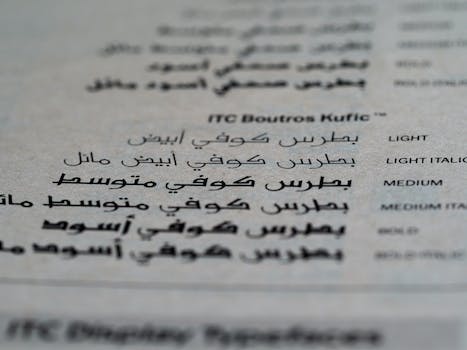 بطرس صحفي أسود BOLD
بطرس صحفي أسود مائل
ITC Boutros Kufic™
بطرس كوفي أبيض LIGHT
بطرس كوفي أبيض مائل LIGHT ITALIC
بطرس كوفي متوسط MEDIUM
بطرس كوفي متوسط مائ MEDIUM ITA
بطرس كوفي أسود BOLD
بطرس كوفي أسود ما BOLD ITALIC
ITC Display Typefaces